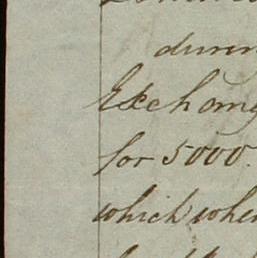 durin
Exchang
for 5000.
which when